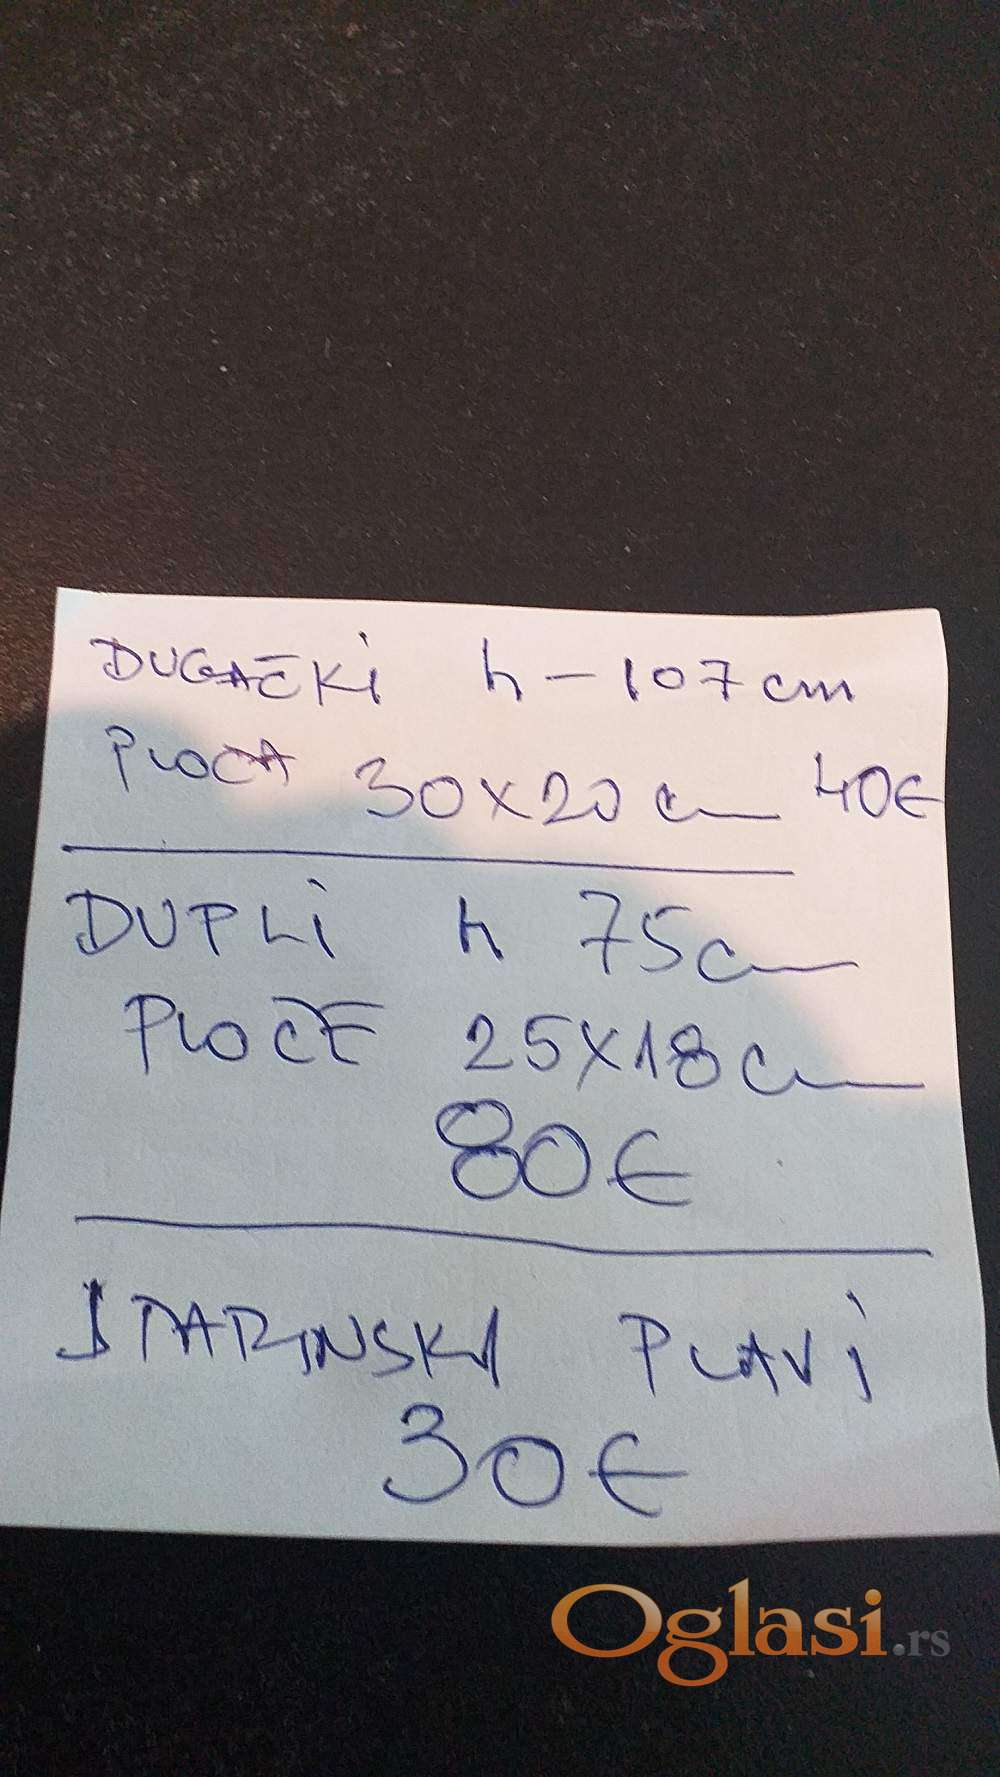 DUGAČKI h-107cm
PLOČA 30x20cm 40€
DUPLI h 75cm
PLOČE 25x18cm
80€
STARINSKI PLAVI
30€
Oglasi.rs